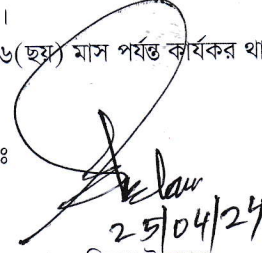 ।
৬(ছয়) মাস পর্যন্ত কার্যকর থা
ঃ
25/04/24